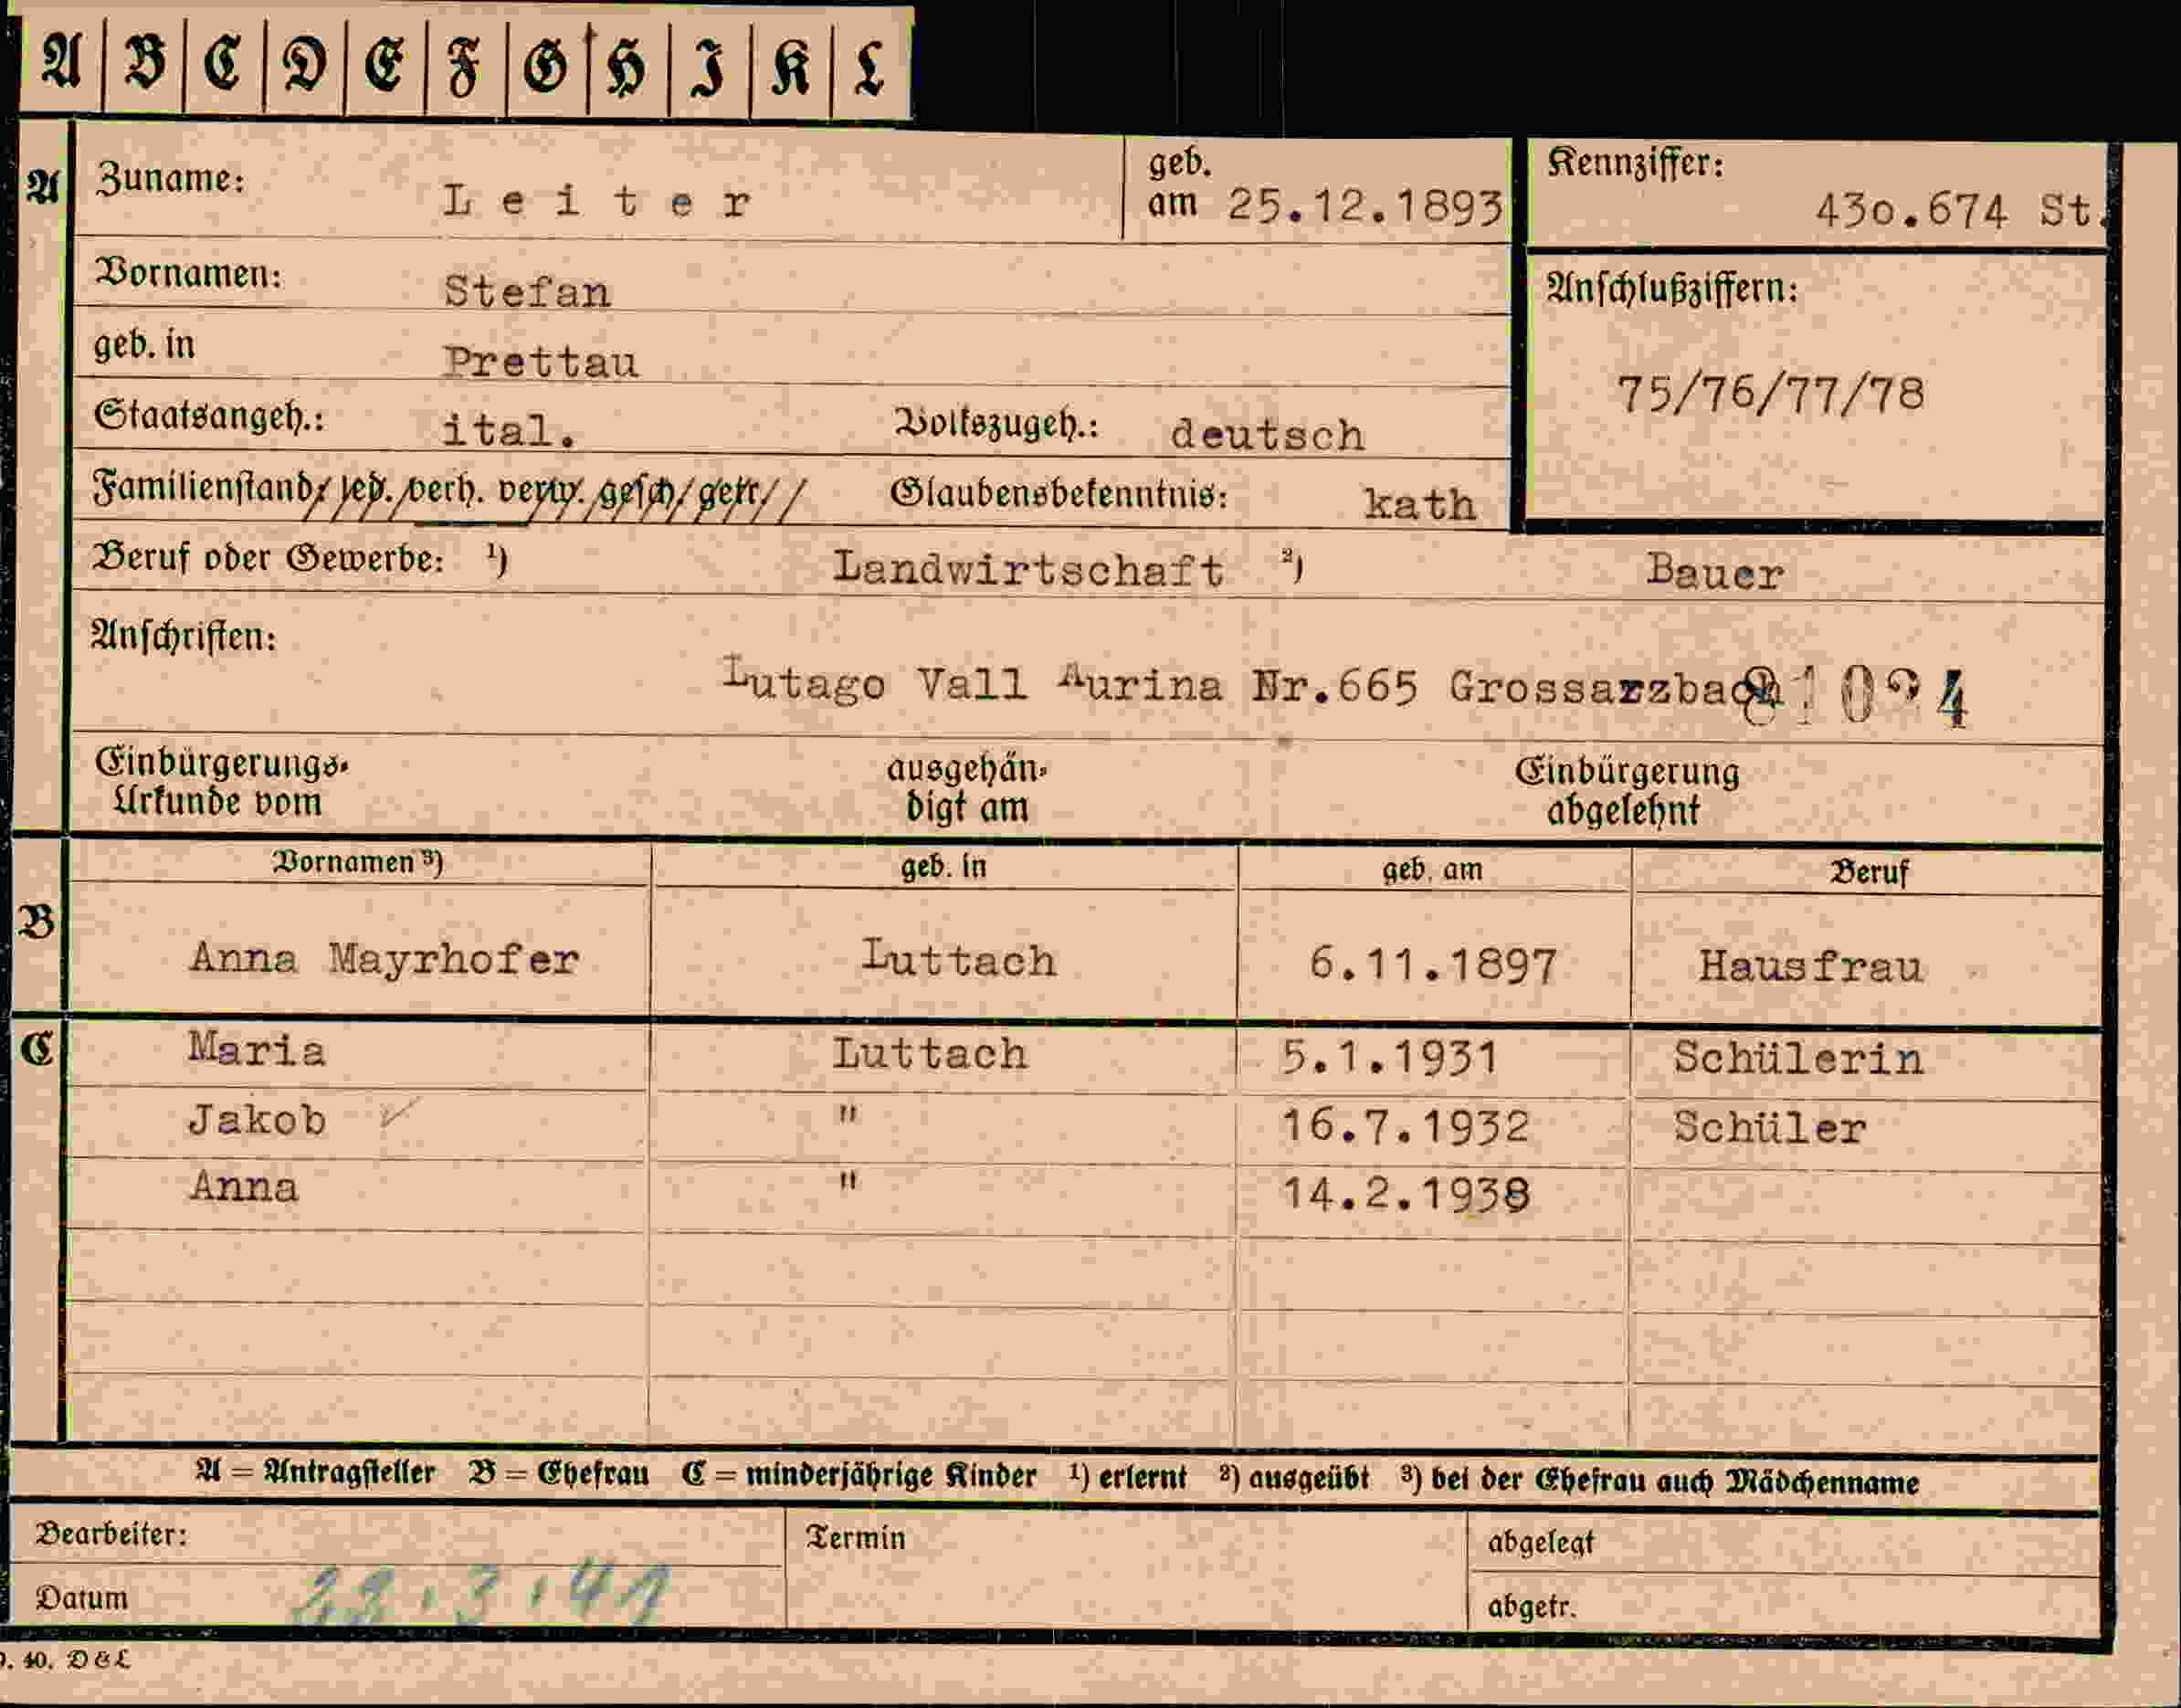 A B C D E F G H I K L
A Zuname: Leiter geb. am 25.12.1893 Kennziffer: 430.674 St.
Vornamen: Stefan Anschlußziffern:
geb. in Prettau 75/76/77/78
Staatsangeh.: ital. Volkszugeh.: deutsch
Familienstand: led. verh. verw. gesch. getr. Glaubensbekenntnis: kath
Beruf oder Gewerbe: ¹) Landwirtschaft ²) Bauer
Anschriften:
Lutago Vall Aurina Nr.665 Grossarzbach
Einbürgerungs- ausgehän- Einbürgerung
Urkunde vom digt am abgelehnt
Vornamen ³) geb. in geb. am Beruf
B Anna Mayrhofer Luttach 6.11.1897 Hausfrau
C Maria Luttach 5.1.1931 Schülerin
Jakob " 16.7.1932 Schüler
Anna " 14.2.1938
A = Antragsteller B = Ehefrau C = minderjährige Kinder ¹) erlernt ²) ausgeübt ³) bei der Ehefrau auch Mädchenname
Bearbeiter: Termin abgelegt
Datum abgetr.
40. D & L